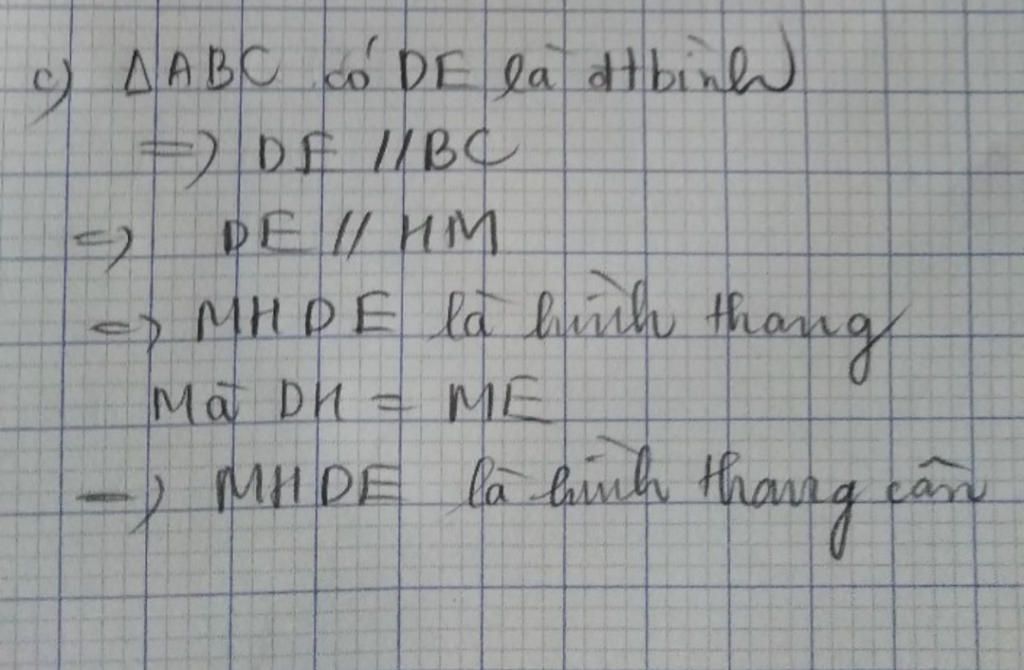 c) ΔABC có DE là đtbình
=> DE // BC
=> DE // HM
=> MHDE là hình thang
Mà DH = ME
=> MHDE là hình thang cân